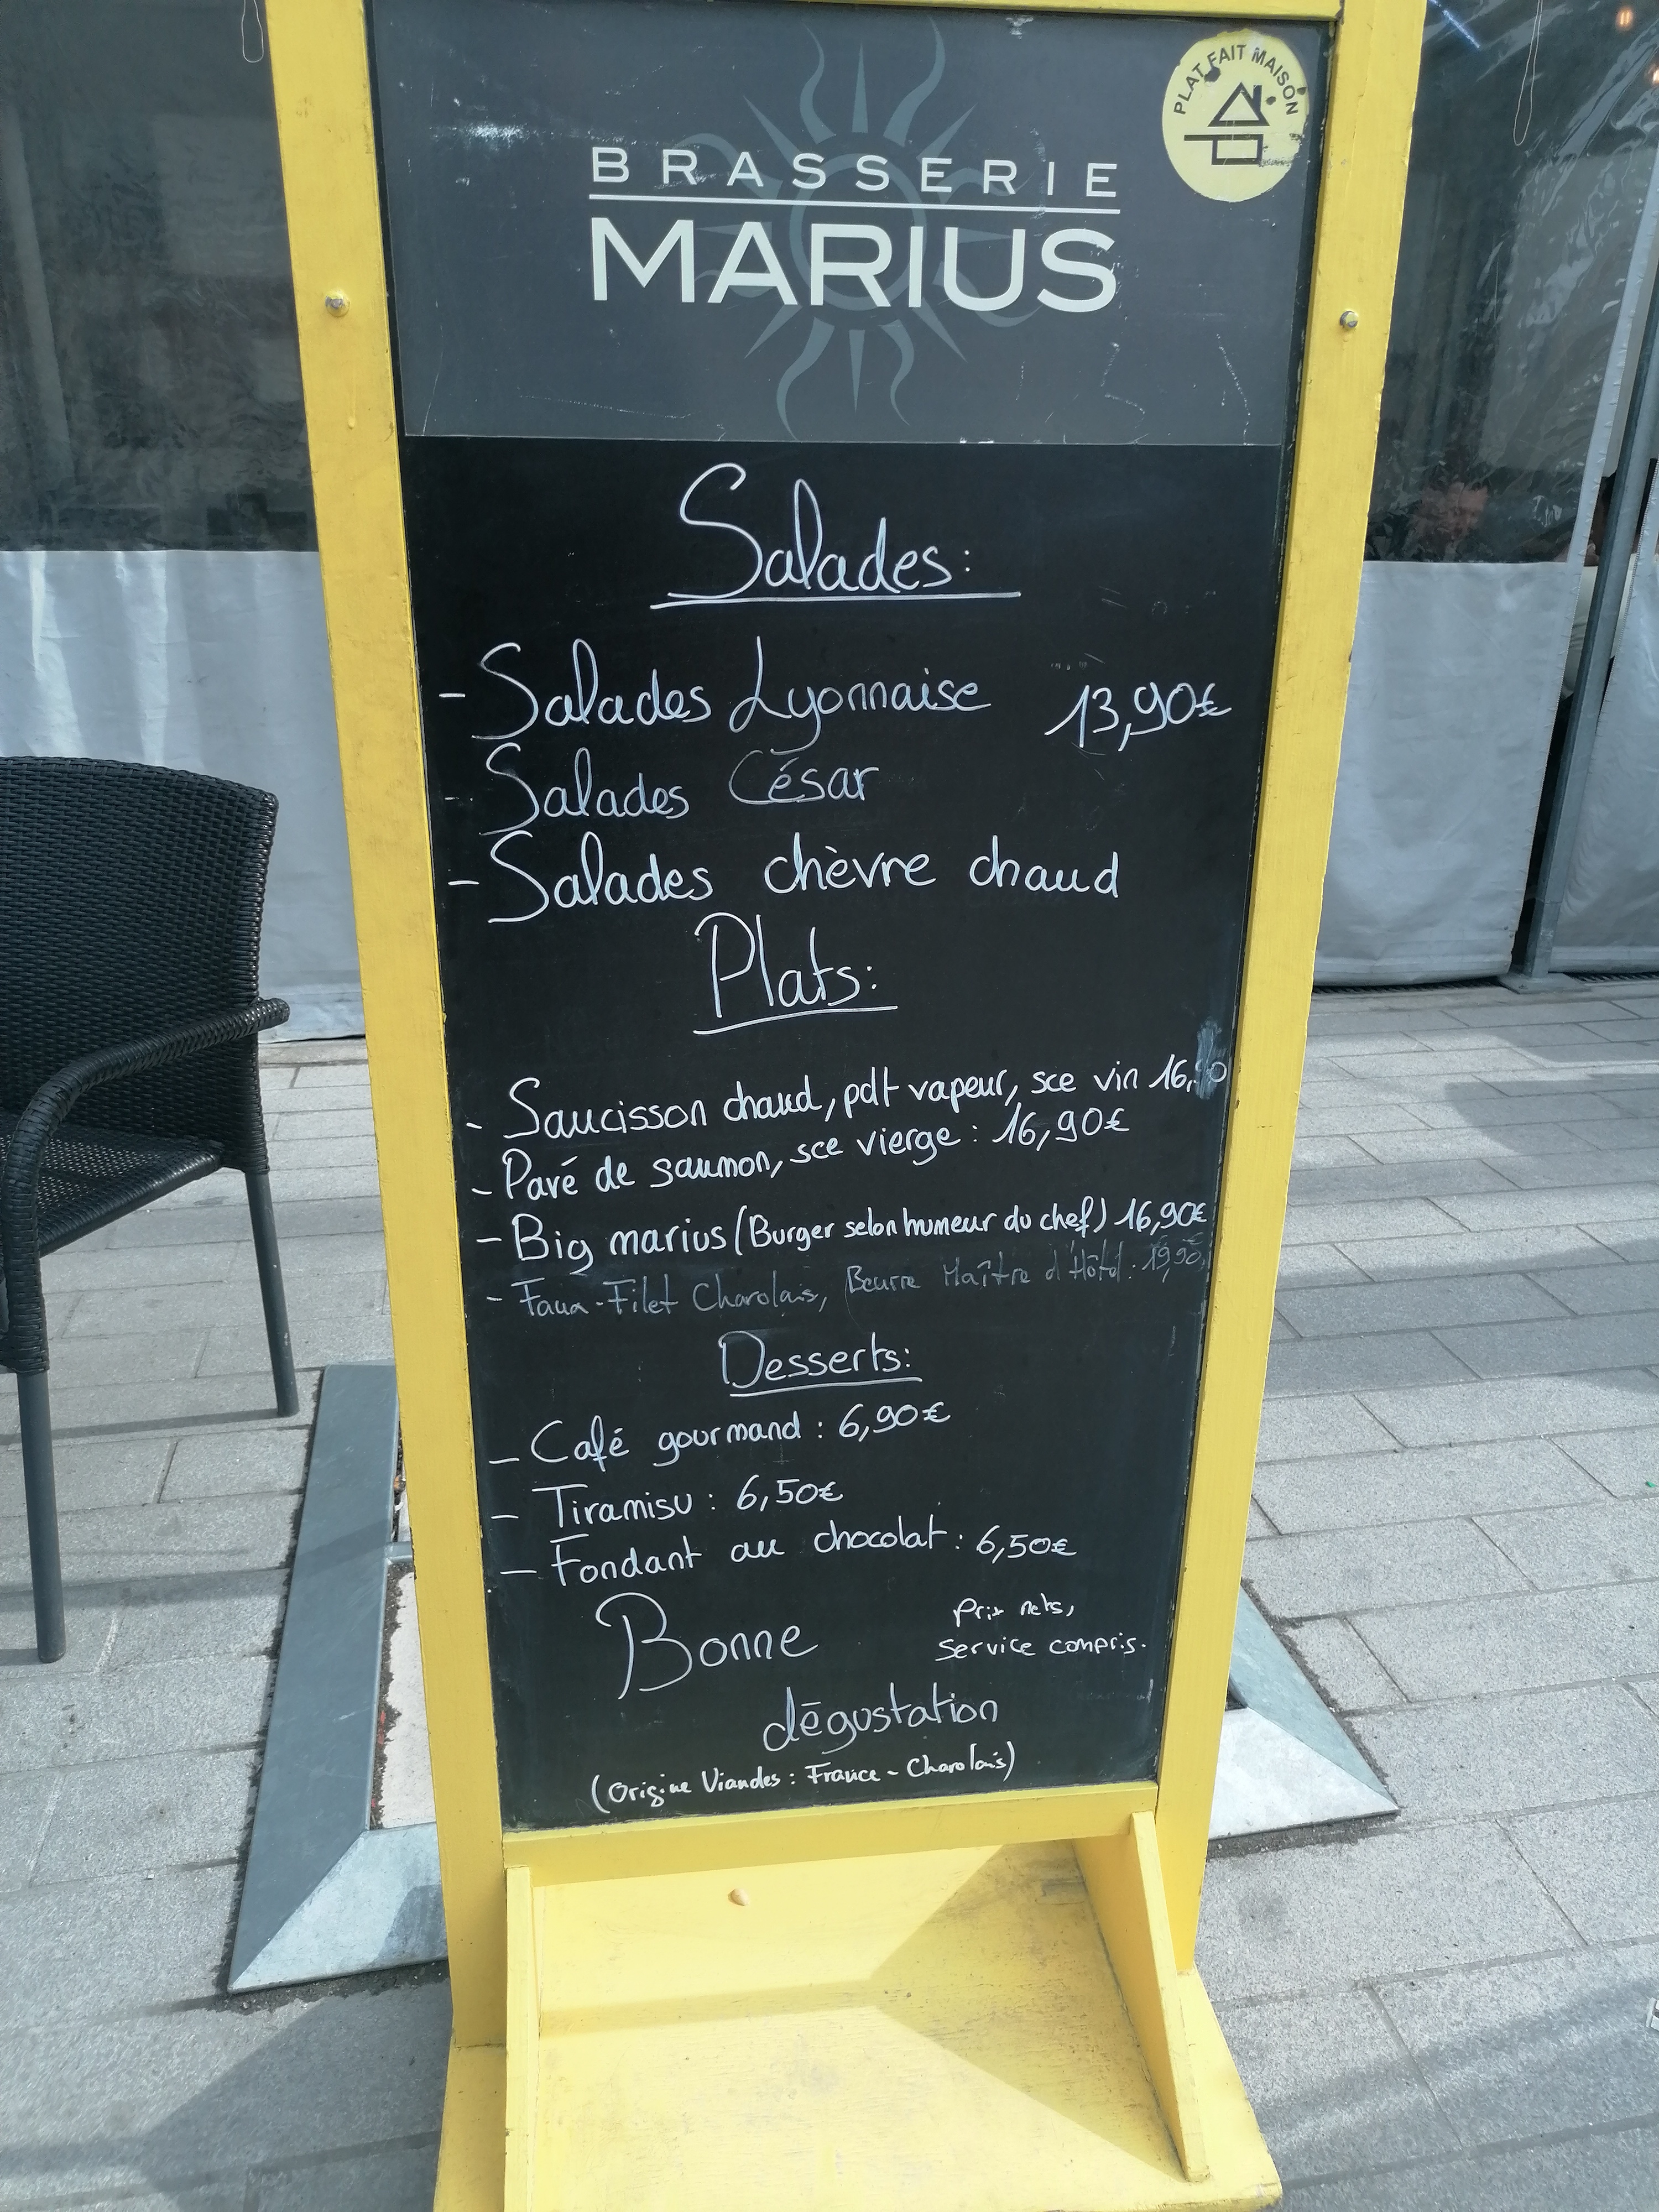 PLAT FAIT MAISON
BRASSERIE
MARIUS
Salades:
- Salades Lyonnaise 13,90€
- Salades César
- Salades chèvre chaud
Plats:
- Saucisson chaud, pdt vapeur, sce vin
- Pavé de saumon, sce vierge : 16,90€
- Big marius (Burger selon humeur du chef) 16,90€
- Faux-Filet Charolais, Beurre Maître d'Hôtel : 19,90€
Desserts:
- Café gourmand : 6,90€
- Tiramisu : 6,50€
- Fondant au chocolat : 6,50€
Bonne
Prix nets,
service compris.
dégustation
(Origine Viandes : France - Charolais)